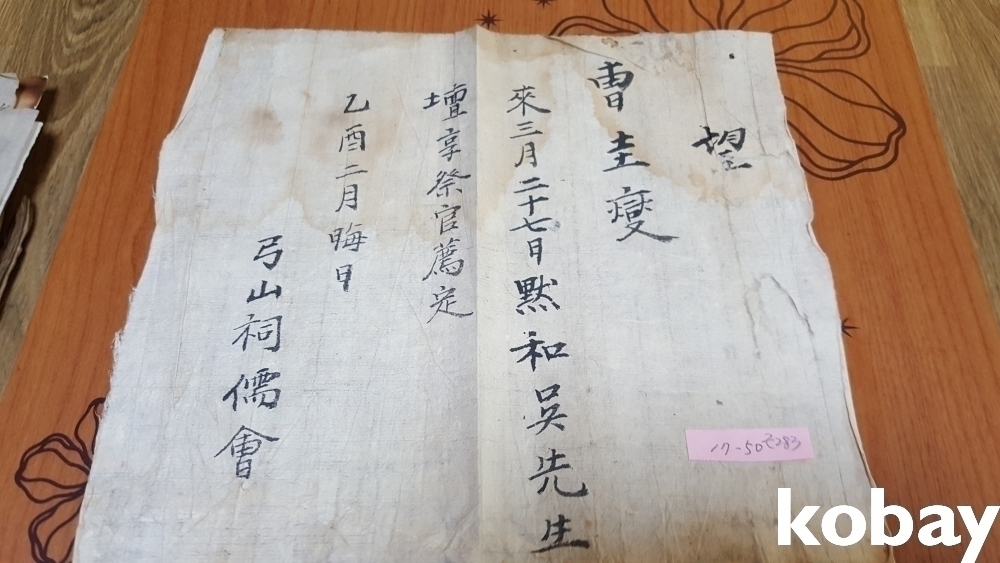 望
曺圭燮
來三月二十七日默和吳先生
壇享祭官薦定
乙酉二月晦日
弓山祠儒會
17-50
kobay